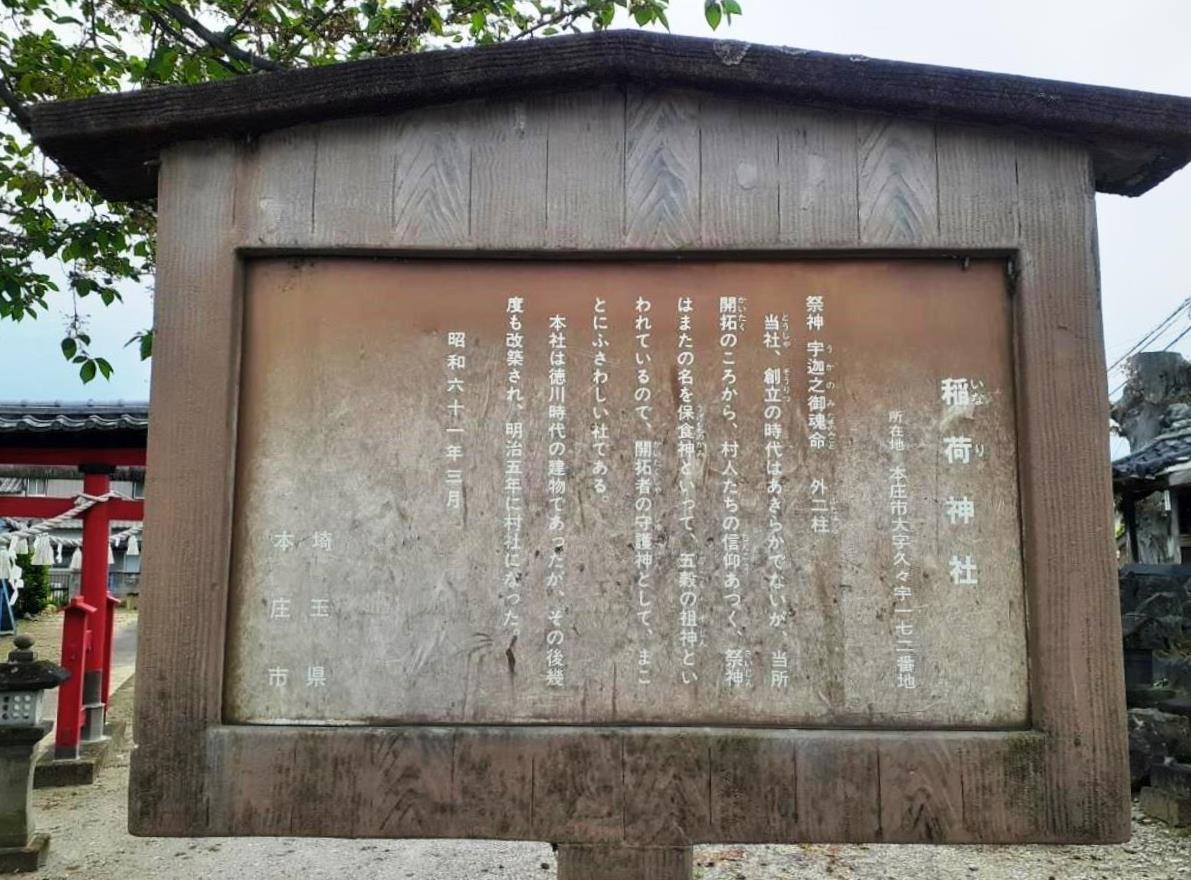 稲荷神社
所在地 本庄市大字久々宇一七二番地
祭神 宇迦之御魂命 外二柱
当社、創立の時代はあきらかでないが、当所
開拓のころから、村人たちの信仰あつく、祭神
はまたの名を保食神といって、五穀の祖神とい
われているので、開拓者の守護神として、まこ
とにふさわしい社である。
本社は徳川時代の建物であったが、その後幾
度も改築され、明治五年に村社になった。
昭和六十一年三月
埼玉県
本庄市